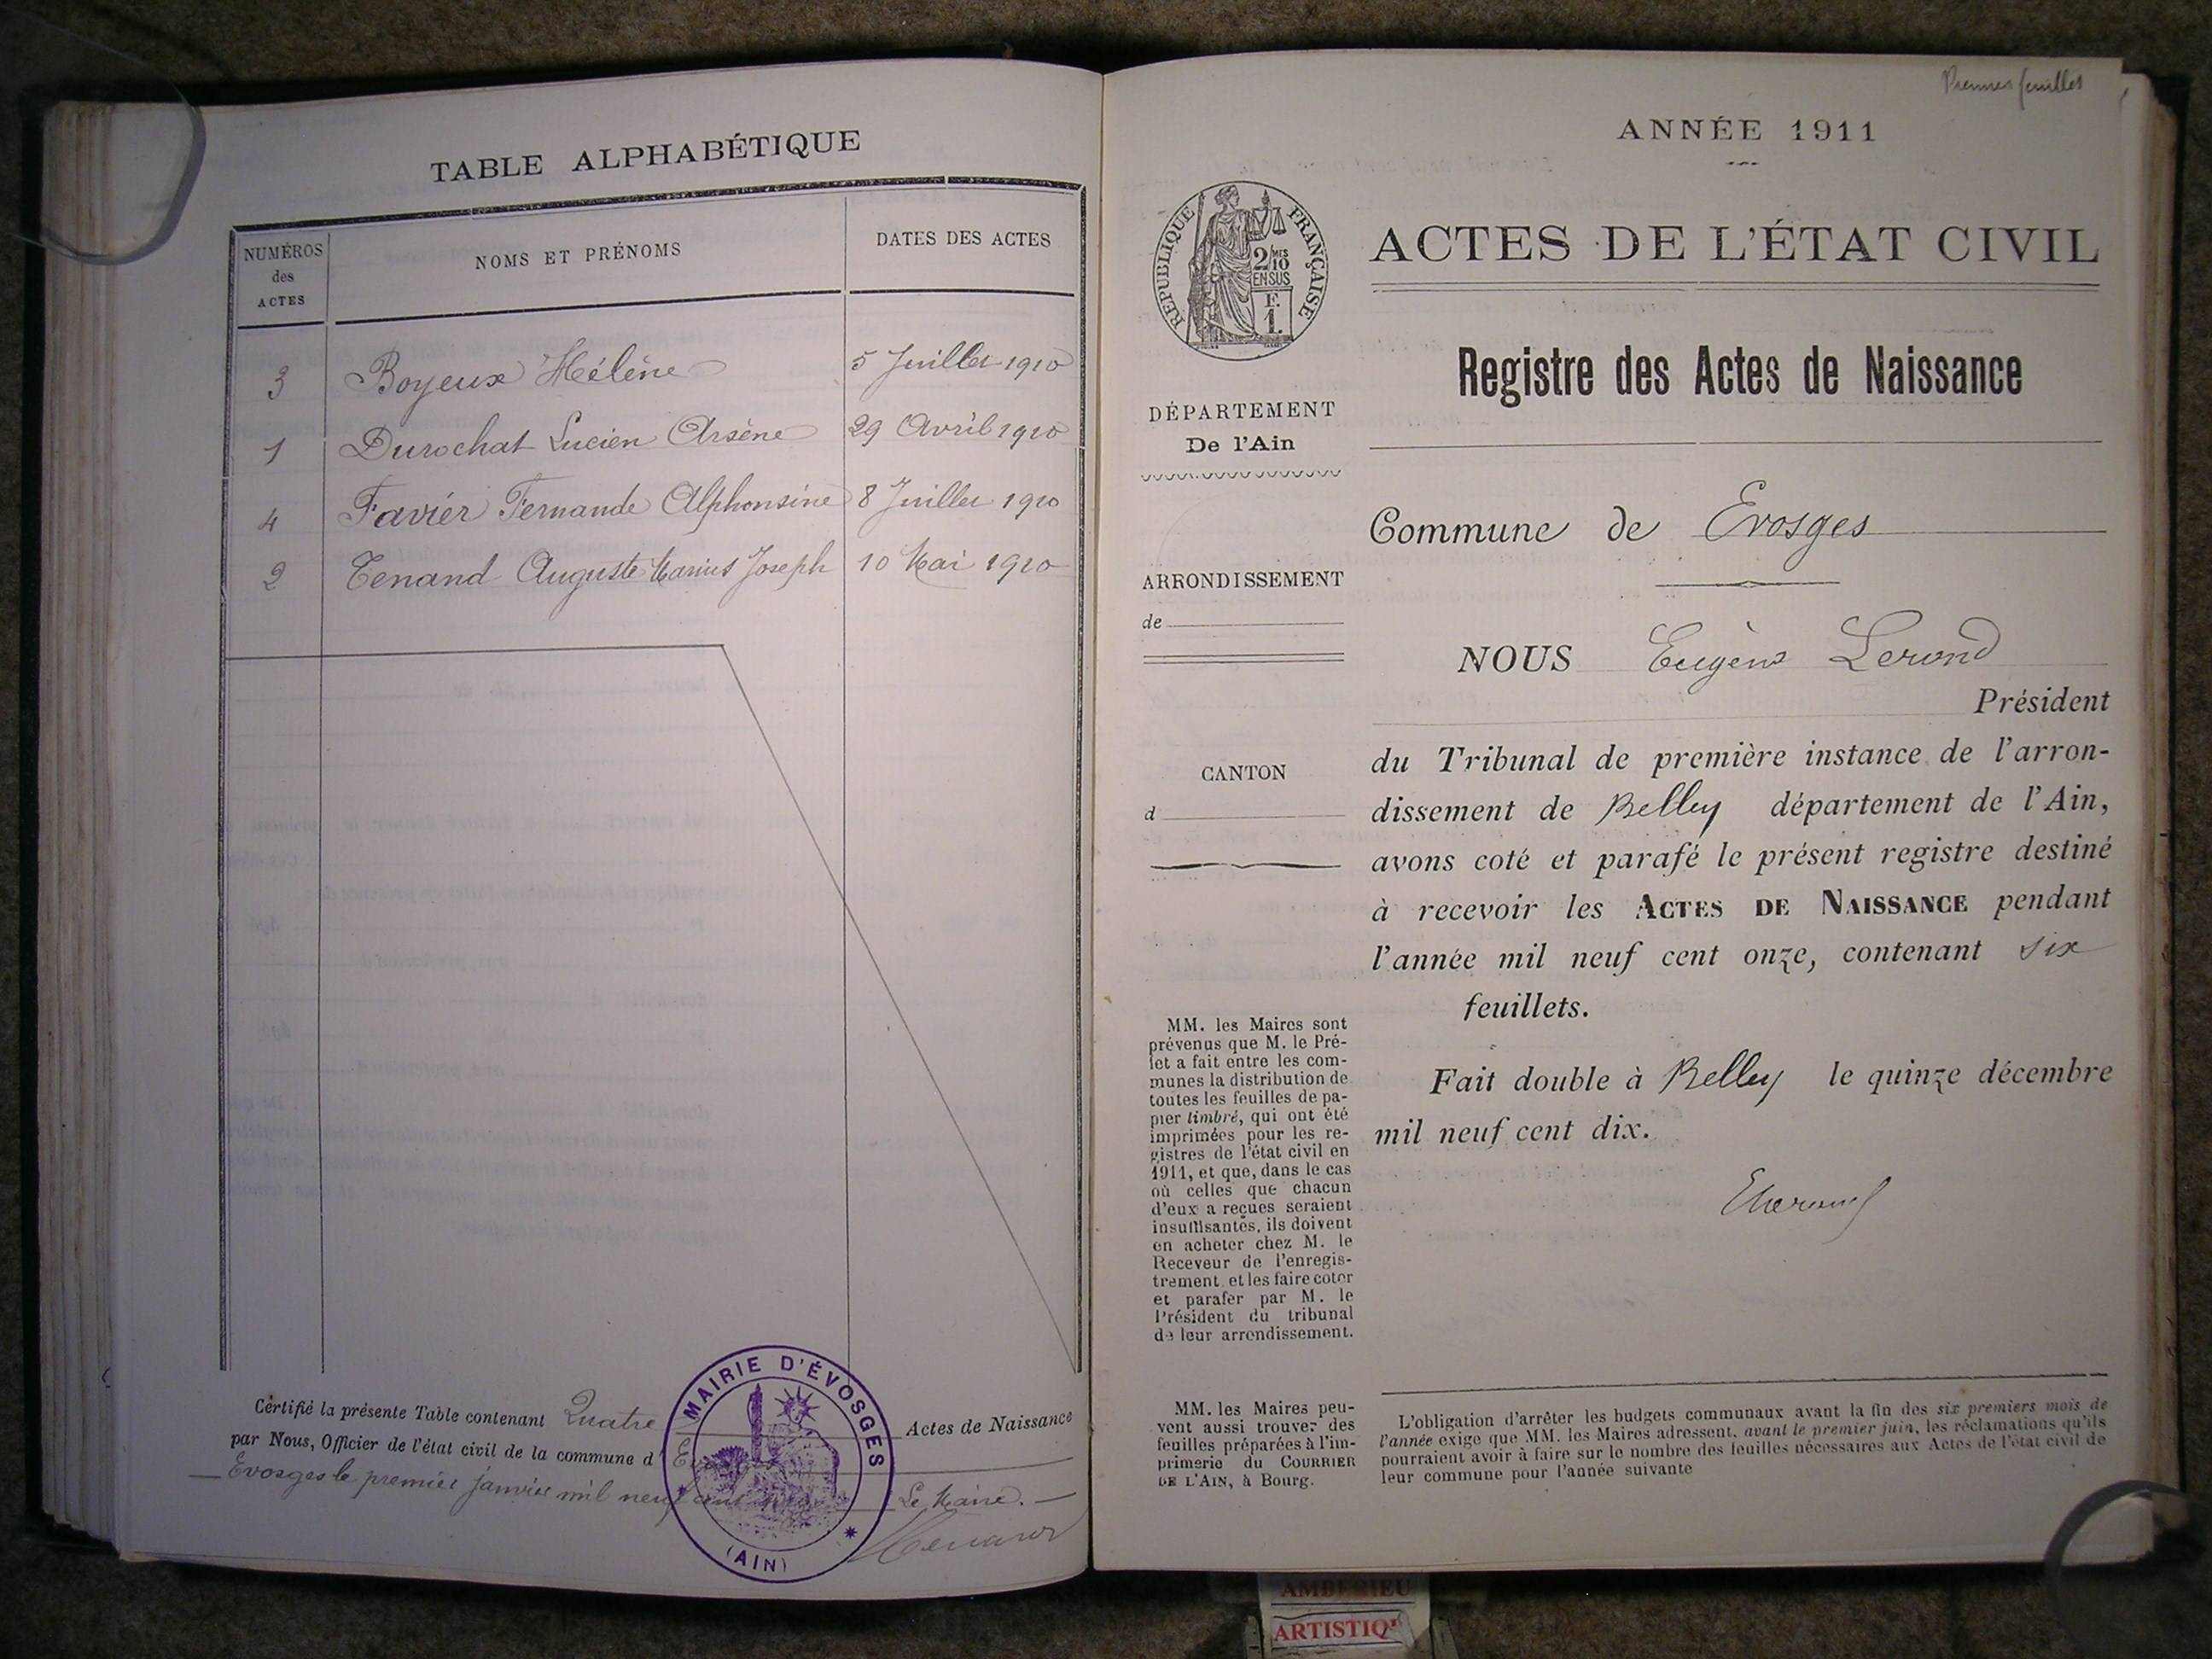 TABLE ALPHABÉTIQUE
NUMÉROS des ACTES
NOMS ET PRÉNOMS
DATES DES ACTES
3 Boyeux Hélène 5 Juillet 1910
1 Durochat Lucien Arsène 29 Avril 1910
4 Favier Fernande Alphonsine 8 Juillet 1910
2 Tenand Auguste Marius Joseph 10 Mai 1910
Certifié la présente Table contenant Quatre Actes de Naissance
par Nous, Officier de l'état civil de la commune d'
Evosges le premier janvier mil neuf cent Le Maire.
MAIRIE D'ÉVOSGES
(AIN)
Premier feuillet
ANNÉE 1911
RÉPUBLIQUE FRANÇAISE
2/10 MES
EN SUS
F.
1.
ACTES DE L'ÉTAT CIVIL
Registre des Actes de Naissance
DÉPARTEMENT
De l'Ain
Commune de Evosges
ARRONDISSEMENT
de
NOUS Eugène Lerond
Président
CANTON
d
du Tribunal de première instance de l'arron-
dissement de Belley département de l'Ain,
avons coté et parafé le présent registre destiné
à recevoir les ACTES DE NAISSANCE pendant
l'année mil neuf cent onze, contenant six
feuillets.
Fait double à Belley le quinze décembre
mil neuf cent dix.
MM. les Maires sont
prévenus que M. le Pré-
fet a fait entre les com-
munes la distribution de
toutes les feuilles de pa-
pier timbré, qui ont été
imprimées pour les re-
gistres de l'état civil en
1911, et que, dans le cas
où celles que chacun
d'eux a reçues seraient
insuffisantes, ils doivent
en acheter chez M. le
Receveur de l'enregis-
trement et les faire coter
et parafer par M. le
Président du tribunal
de leur arrondissement.
MM. les Maires peu-
vent aussi trouver des
feuilles préparées à l'im-
primerie du COURRIER
DE L'AIN, à Bourg.
L'obligation d'arrêter les budgets communaux avant la fin des six premiers mois de
l'année exige que MM. les Maires adressent, avant le premier juin, les réclamations qu'ils
pourraient avoir à faire sur le nombre des feuilles nécessaires aux Actes de l'état civil de
leur commune pour l'année suivante
AMBERIEU
ARTISTIQ